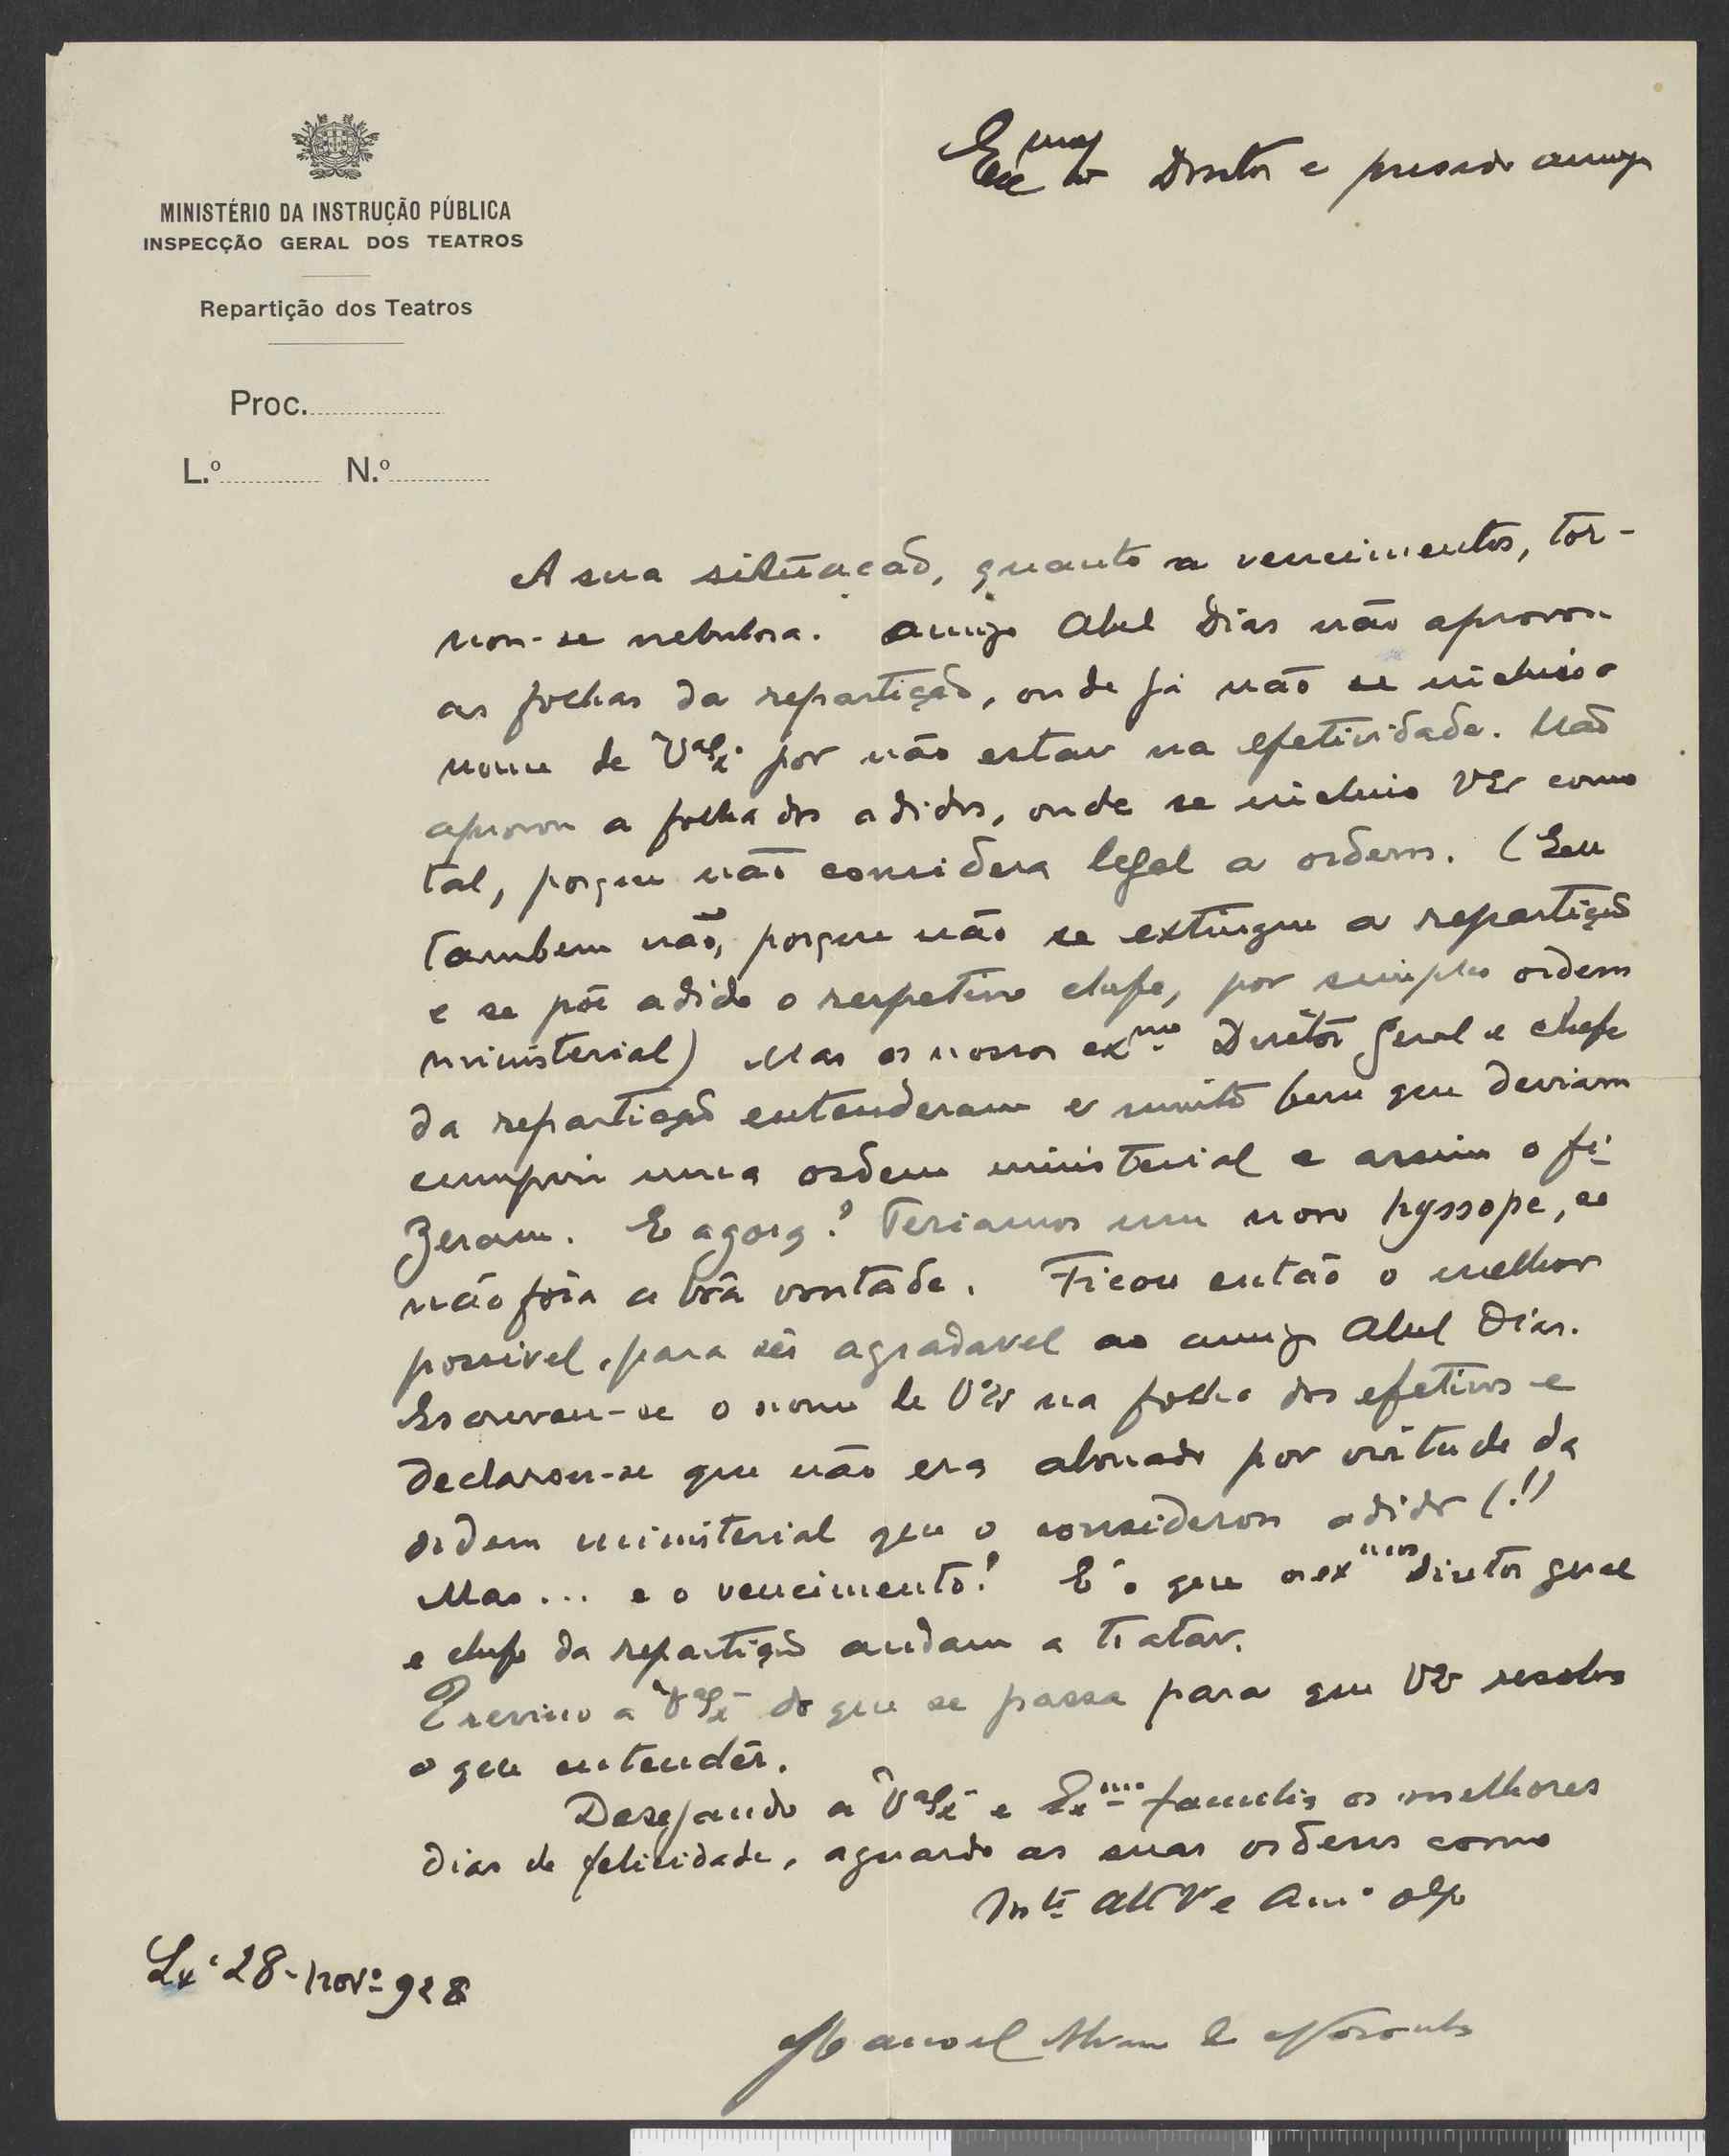 MINISTÉRIO DA INSTRUÇÃO PÚBLICA
INSPECÇÃO GERAL DOS TEATROS
Repartição dos Teatros
Proc.
L.º N.º
Doutor e presado amigo
A sua situação, quanto a vencimentos, tor-
nou-se nebulosa. amigo Abel Dias não aprovou
as folhas da repartição, onde já não se incluiu o
nome de V.ª Ex.ª por não estar na efetividade. Não
aprovou a folha dos adidos, onde se incluio V Ex como
tal, porque não considera legal a ordem. (Eu
tambem não, porque não se extingue a repartição
e se põe adido o respetivo chefe, por simples ordem
ministerial) Mas os nossos ex.mos Diretor geral e chefe
da repartição entenderam e muito bem que deviam
cumprir uma ordem ministerial e assim o fi-
zeram. E agora? Teriamos um novo hyssope, se
não fôra a bôa vontade. Ficou então o melhor
possivel, para sêr agradavel ao amigo Abel Dias.
Escreveu-se o nome de V Ex na folha dos efetivos e
declarou-se que não era abonado por virtude da
ordem ministerial que o considerou adido (!)
Mas... e o vencimento? E' o que os ex.mos diretor geral
e chefe da repartição andam a tratar.
Previno a V.ª Ex.ª do que se passa para que V Ex resolva
o que entendêr.
Desejando a V.ª Ex.ª e Ex.ma familia os melhores
dias de felicidade, aguardo as suas ordens como
M.to Att.º V.or e Am.º obg.º
Lx.ª 28-nov.º 928
Manoel de Noronha